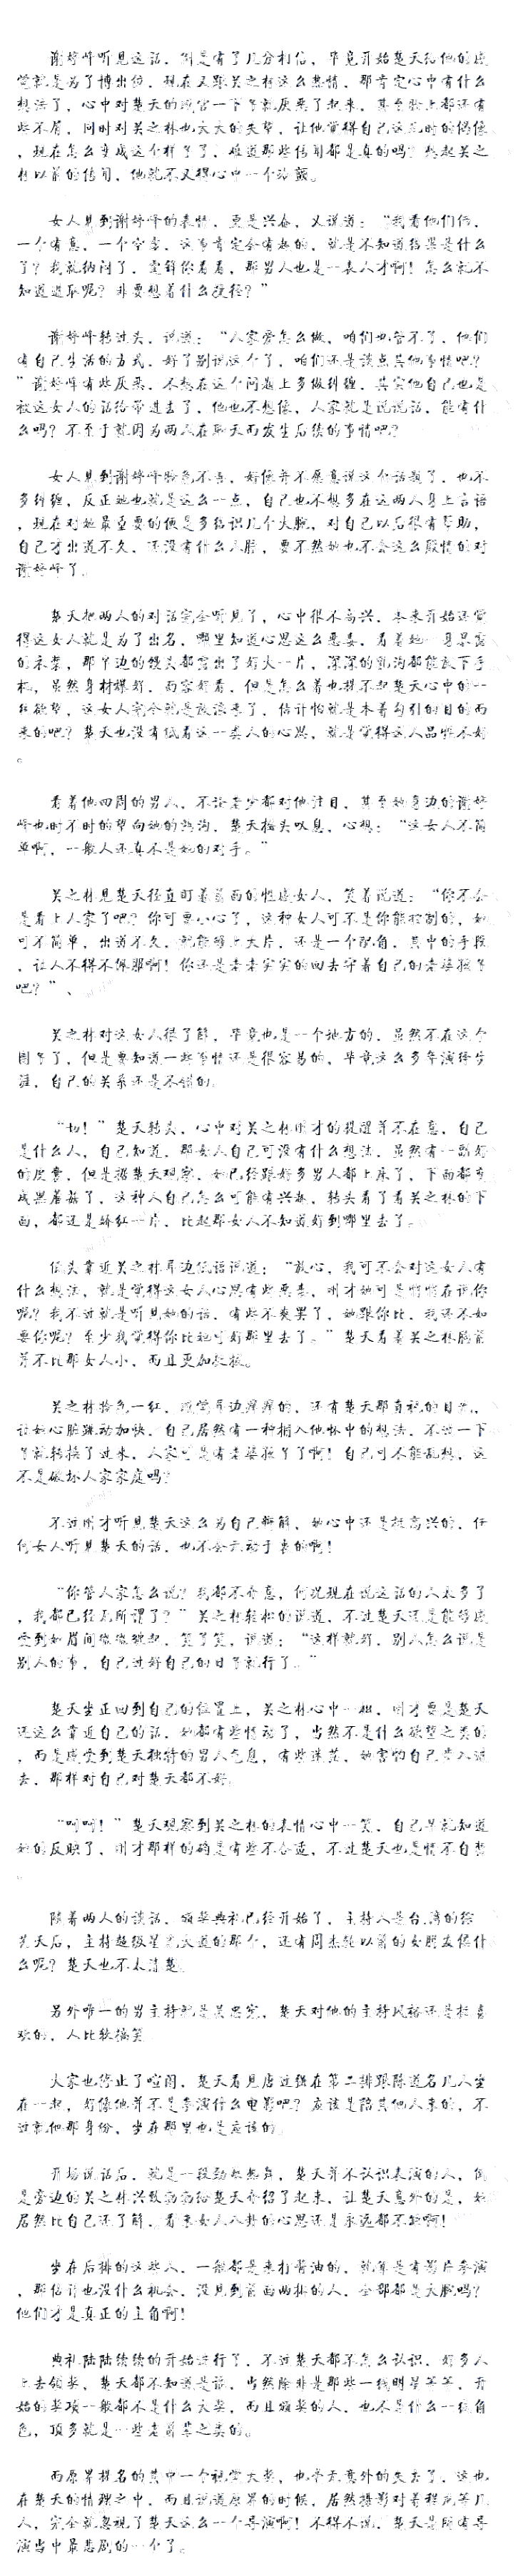 谢婷峰听见这话，倒是有了几分相信，毕竟开始楚天给他的感
觉就是为了博出位，现在又跟关之林这么热情，那肯定心中有什么
想法了，心中对楚天的感官一下子就厌恶了起来，甚至脸上都还有
些不屑，同时对关之林也大大的失望，让他觉得自己这儿时的偶像
，现在怎么变成这个样子了，难道那些传闻都是真的吗？想起关之
林以前的传闻，他就不又得心中一个冷颤。
女人见到谢婷峰的表情，更是兴奋，又说道：“我看他们俩，
一个有意，一个空虚，这事肯定会有起的，就是不知道结果是什么
了？我就纳闷了，霆锋你看看，那男人也是一表人才啊！怎么就不
知道进取呢？非要想着什么捷径？”
谢婷峰转过头，说道：“人家旁怎么做，咱们也管不了，他们
有自己生活的方式，好了别说这个了，咱们还是谈点其他事情吧？
”谢婷峰有些厌恶，不想在这个问题上多做纠缠，其实他自己也是
被这女人的话给带进去了，他也不想像，人家就是说说话，能有什
么吗？不至于就因为两人在聊天而发生后续的事情吧？
女人见到谢婷峰脸色不善，好像并不愿意说这个话题了，也不
多纠缠，反正她也就是这么一点，自己也不想多在这两人身上言语
，现在对她最重要的便是多结识几个大腕，对自己以后很有帮助，
自己才出道不久，还没有什么人脉，要不然她也不会这么殷情的对
谢婷峰了。
楚天把两人的对话完全听见了，心中很不高兴，本来开始还觉
得这女人就是为了出名，哪里知道心思这么恶毒，看着她一身暴露
的衣装，那半边的馒头都露出了好大一片，深深的乳沟都能放下手
机，虽然身材撩好，面容好看，但是怎么着也撩不起楚天心中的一
丝欲望，这女人完全就是放浪来了，估计怕就是本着勾引的目的而
来的吧？楚天也没有低看这一类人的心思，就是觉得这人品性不好
。
看着他四周的男人，不论老少都对他注目，甚至她身边的谢婷
峰也时不时的望向她的乳沟，楚天摇头叹息，心想：“这女人不简
单啊，一般人还真不是她的对手。”
关之林见楚天径直盯着前面的性感女人，笑着说道：“你不会
是看上人家了吧？你可要小心了，这种女人可不是你能控制的，她
可不简单，出道不久，就能够上大片，还是一个配角，其中的手段
，让人不得不佩服啊！你还是老老实实的回去守着自己的老婆孩子
吧？”、
关之林对这女人很了解，毕竟也是一个地方的，虽然不在这个
圈子了，但是要知道一些事情还是很容易的，毕竟这么多年演绎生
涯，自己的关系还是不错的。
“切！”楚天转头，心中对关之林刚才的提醒并不在意，自己
是什么人，自己知道，那女人自己可没有什么想法，虽然有一副好
的皮囊，但是据楚天观察，她已经跟好多男人都上床了，下面都变
成黑蘑菇了，这种人自己怎么可能有兴趣，转头看了看关之林的下
面，都还是娇红一片，比起那女人不知道好到哪里去了。
低头靠近关之林耳边低语说道：“放心，我可不会对这女人有
什么想法，就是觉得这女人心思有些恶毒，刚才她可是悄悄在说你
呢？我不过就是听见她的话，有些不爽罢了，她跟你比，我还不如
要你呢？至少我觉得你比她可好那里去了。”楚天看着关之林胸前
并不比那女人小，而且更加挺拔。
关之林脸色一红，感觉耳边痒痒的，还有楚天那直视的目光，
让她心脏跳动加快，自己居然有一种拥入他怀中的想法，不过一下
子就转换了过来，人家可是有老婆孩子了啊！自己可不能乱想，这
不是破坏人家家庭吗？
不过刚才听见楚天这么为自己辩解，她心中还是挺高兴的，任
何女人听见楚天的话，也不会无动于衷的啊！
“你管人家怎么说？我都不介意，何况现在说这话的人太多了
，我都已经无所谓了？”关之林轻松的说道，不过楚天还是能够感
受到她眉间微微皱起，笑了笑，说道：“这样就好，别人怎么说是
别人的事，自己过好自己的日子就行了。”
楚天坐正回到自己的位置上，关之林心中一松，刚才要是楚天
还这么靠近自己的话，她都有些情动了，当然不是什么欲望之类的
，而是感受到楚天独特的男人气息，有些迷茫，她害怕自己陷入进
去，那样对自己对楚天都不好。
“呵呵！”楚天观察到关之林的表情心中一笑，自己早就知道
她的反映了，刚才那样的确是有些不合适，不过楚天也是情不自禁
。
随着两人的谈话，颁奖典礼已经开始了，主持人是台湾的徐
天后，主持超级星光大道的那个，还有周杰轮以前的女朋友侯什
么呢？楚天也不太清楚。
另外唯一的男主持就是吴忠宪，楚天对他的主持风格还是挺喜
欢的，人比较搞笑。
大家也停止了喧闹，楚天看见唐过强在第二排跟陈道名几人坐
在一起，好像他并不是参演什么电影吧？应该是陪其他人来的，不
过就他那身份，坐在那里也是应该的。
开场说话后，就是一段劲歌热舞，楚天并不认识表演的人，倒
是旁边的关之林兴致勃勃给楚天介绍了起来，让楚天意外的是，她
居然比自己还了解，看来女人八卦的心思还是永远都不缺啊！
坐在后排的这些人，一般都是来打酱油的，就算是有影片参演
，那估计也没什么机会，没见到前面两排的人，全部都是大腕吗？
他们才是真正的主角啊！
典礼陆陆续续的开始进行了，不过楚天都不怎么认识，好多人
上去领奖，楚天都不知道是谁，当然除非是那些一线明星等等，开
始的奖项一般都不是什么大奖，而且颁奖的人，也不是什么一线角
色，顶多就是一些老前辈之类的。
而原界提名的其中一个视觉大奖，也毫无意外的失去了，这也
在楚天的情理之中，而且说道原界的时候，居然摄影对着程风等几
人，完全就忽视了楚天这么一个导演啊！不得不说，楚天是所有导
演当中最悲剧的一个了。